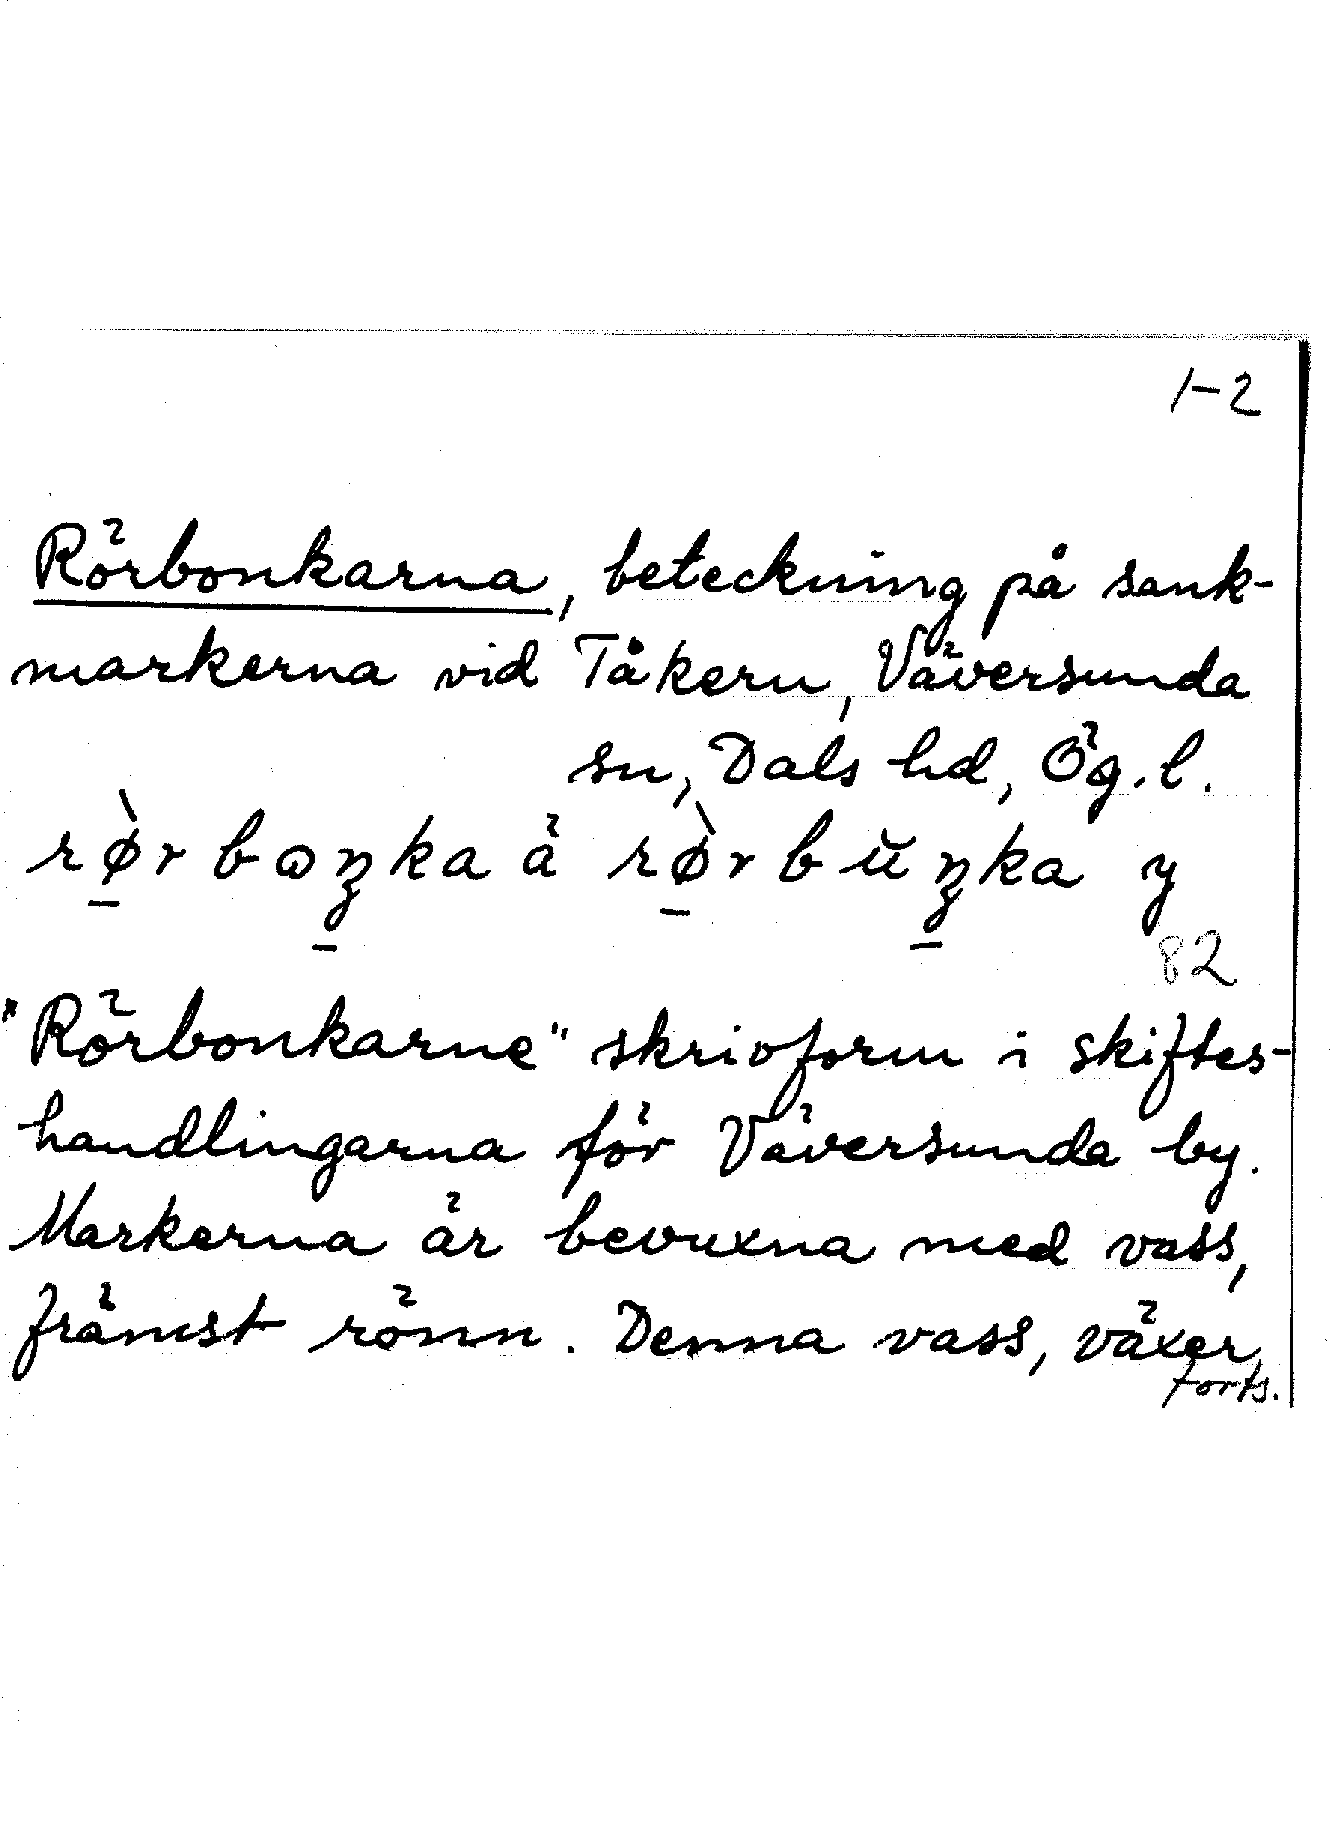 1-2
Rörbonkarna, beteckning på sank-
markerna vid Tåkern, Väversunda
sn, Dals hd, Ög. l.
rø̀r bɷŋka ä rø̀r bŭŋka y
82
"Rörbonkarne" skrivform i skiftes-
handlingarna för Väversunda by.
Markerna är bevuxna med vass,
främst rönn. Denna vass, växer
forts.